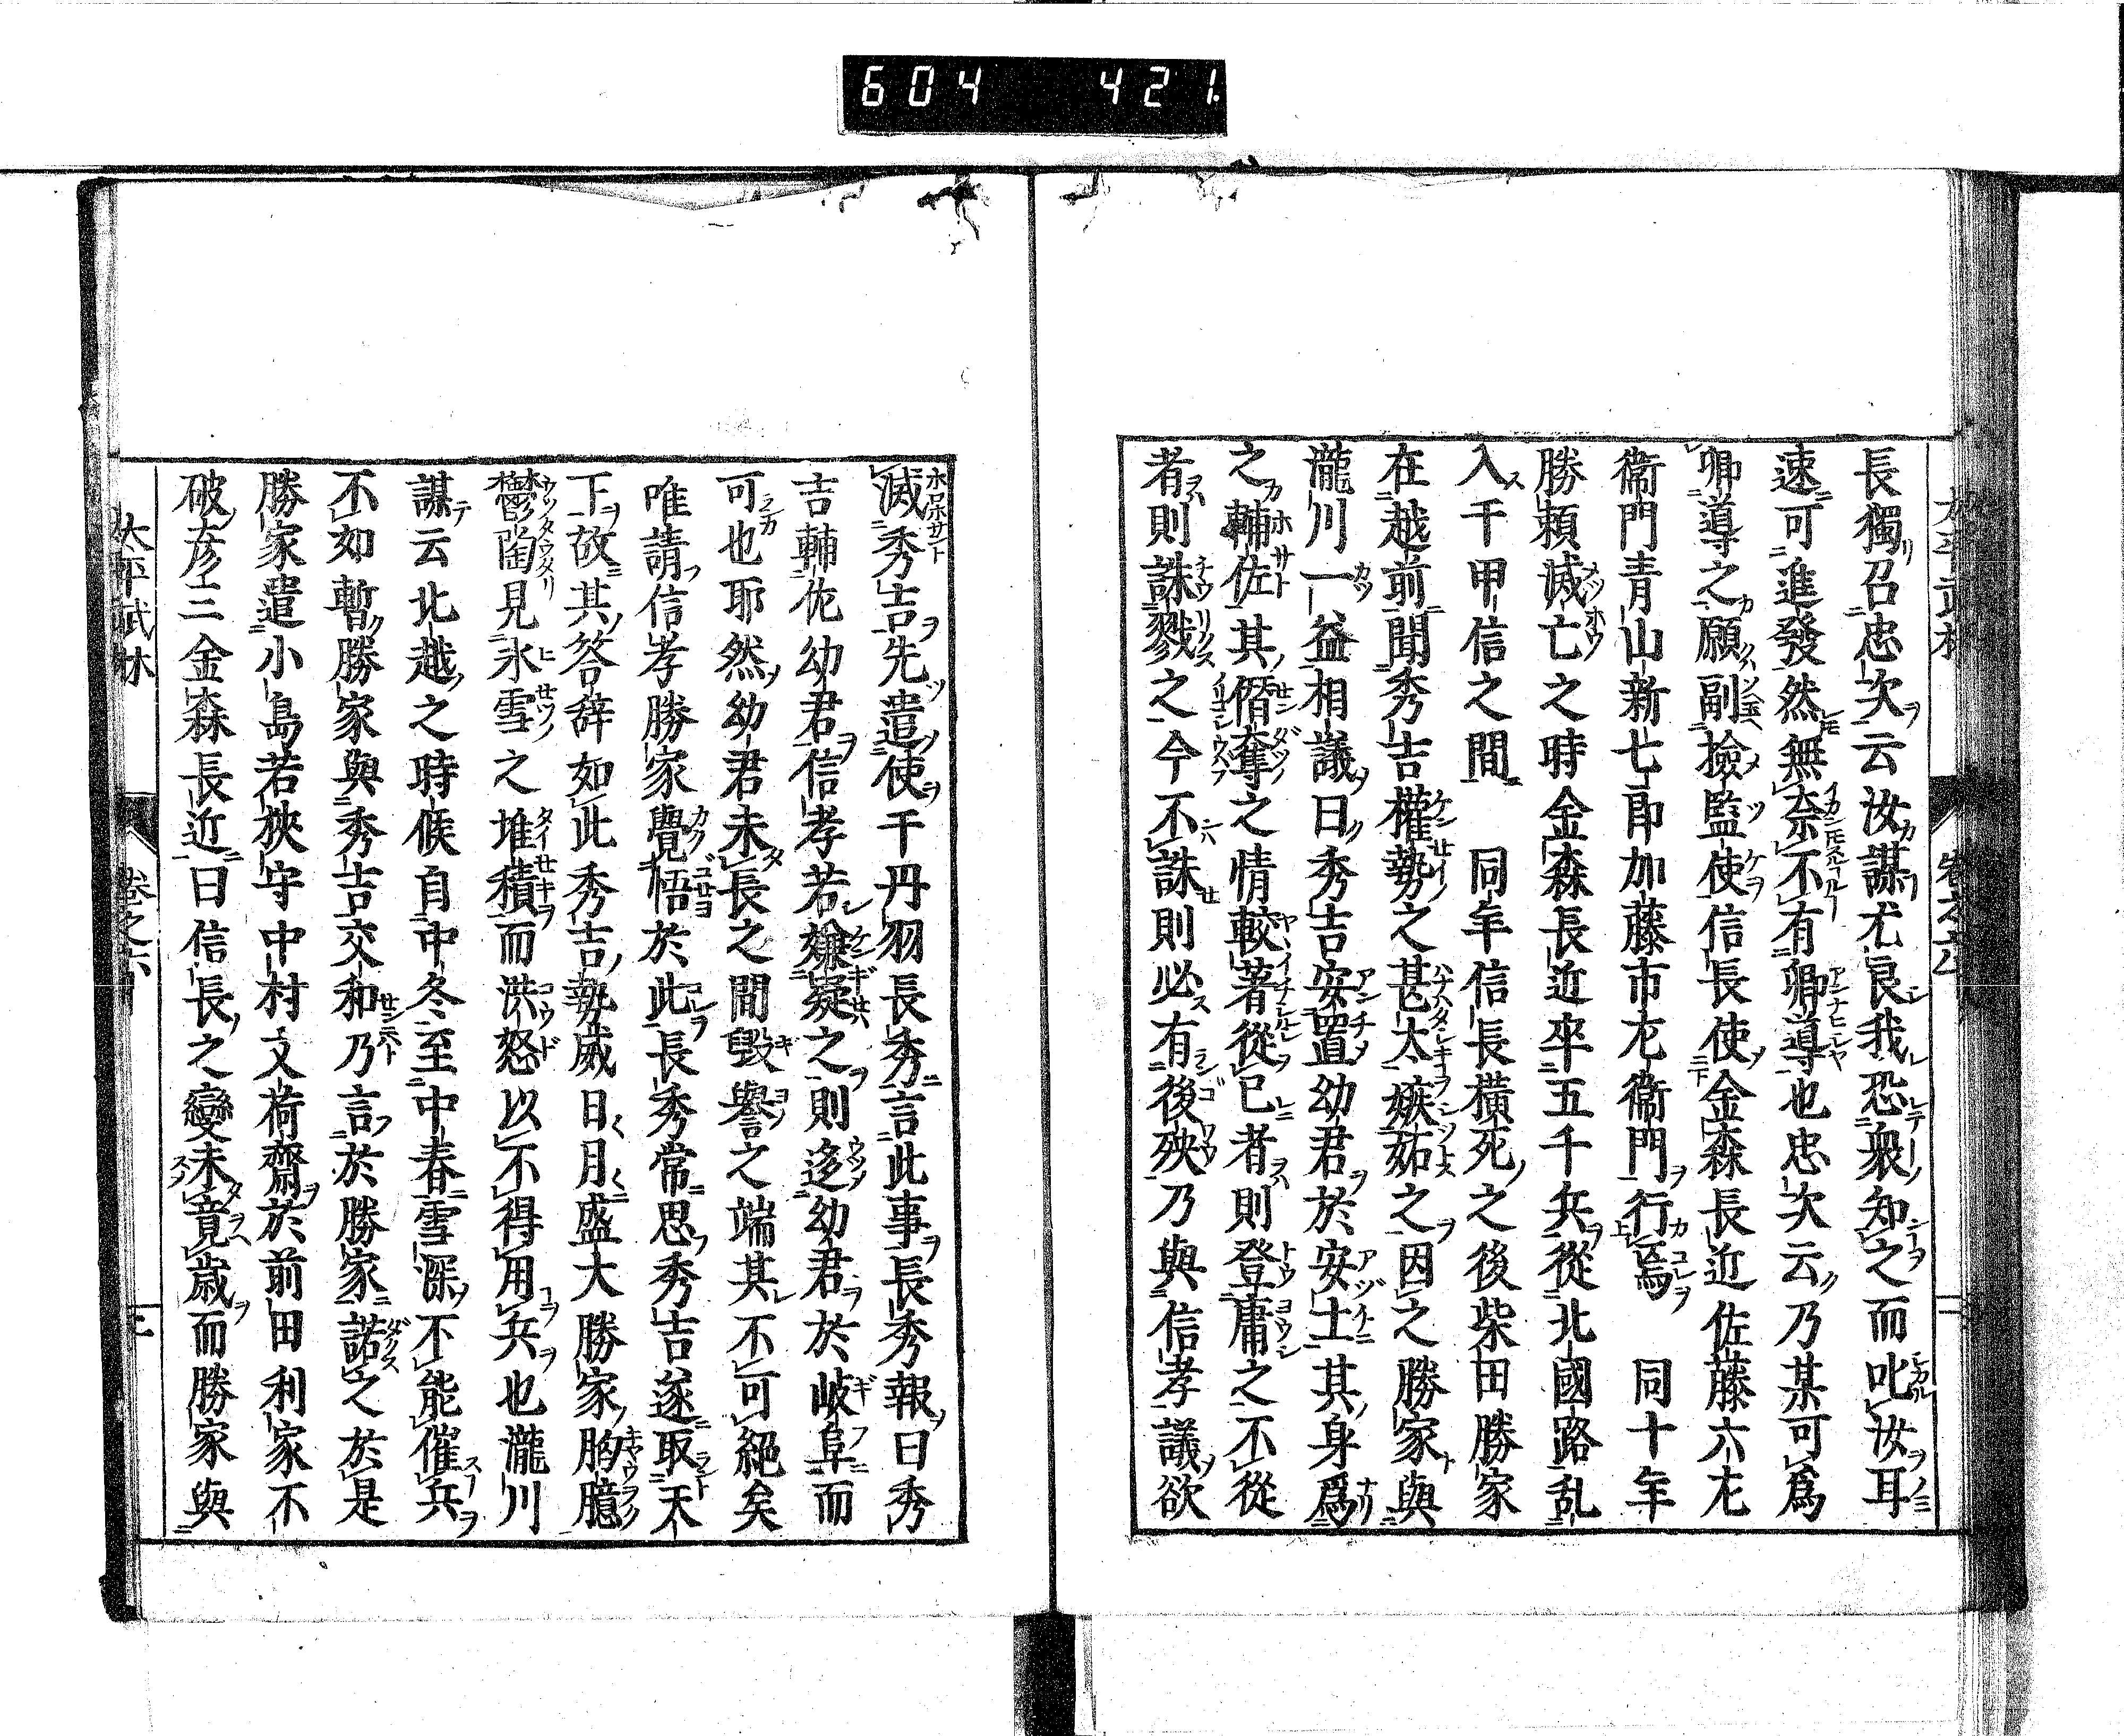 604 421
長獨召忠次云汝謀尤良我恐衆知之而叱汝耳
速可進發然無奈不有卿導也忠次云乃某可爲
卿導之願副撿監使信長使金森長近佐藤六左
衞門青山新七郎加藤市左衞門行焉 同十年
勝頼滅亡之時金森長近卒五千兵從北國路乱
入于甲信之間 同年信長橫死之後柴田勝家
在越前聞秀吉權勢之甚大嫉妬之因之勝家與
瀧川一益相議曰秀吉安置幼君於安土其身爲
之輔佐其僭奪之情較著從已者則登庸之不從
者則誅戮之今不誅則必有後殃乃與信孝議欲
滅秀吉先遣使于丹羽長秀言此事長秀報曰秀
吉輔佐幼君信孝若嫌疑之則迻幼君於岐阜而
可也耶然幼君未長之間毀譽之端其不可絕矣
唯請信孝勝家覺悟於此長秀常思秀吉遂取天
下故其答辞如此秀吉勢威日月盛大勝家胸臆
欝陶見氷雪之堆積而洪怒以不得用兵也瀧川
謀云北越之時候自中冬至中春雪深不能催兵
不如暫勝家與秀吉交和乃言於勝家諾之於是
勝家遣小島若狹守中村文荷齋於前田利家不
破彦三金森長近曰信長之變未竟歲而勝家與
太平武林 卷之六 三